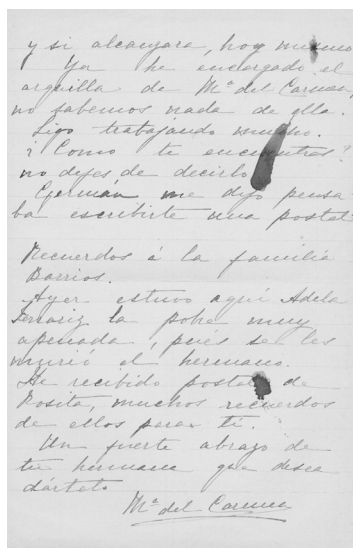 y si alcanzara, hoy mismo
Ya he encargado el
arquilla de Mª del Carmen,
no sabemos nada de ella.
Sigo trabajando mucho.
¿Como te encuentras?
no dejes de decirlo
Germán me dijo pensa
ba escribirte una postal
Recuerdos á la familia
Barrios.
Ayer estuvo aquí Adela
la pobre muy
apenada, pues se les
murió el hermano.
He recibido postal de
Rosita, muchos recuerdos
de ellos para ti.
Un fuerte abrazo de
tu hermana que desea
dártelo
Mª del Carmen